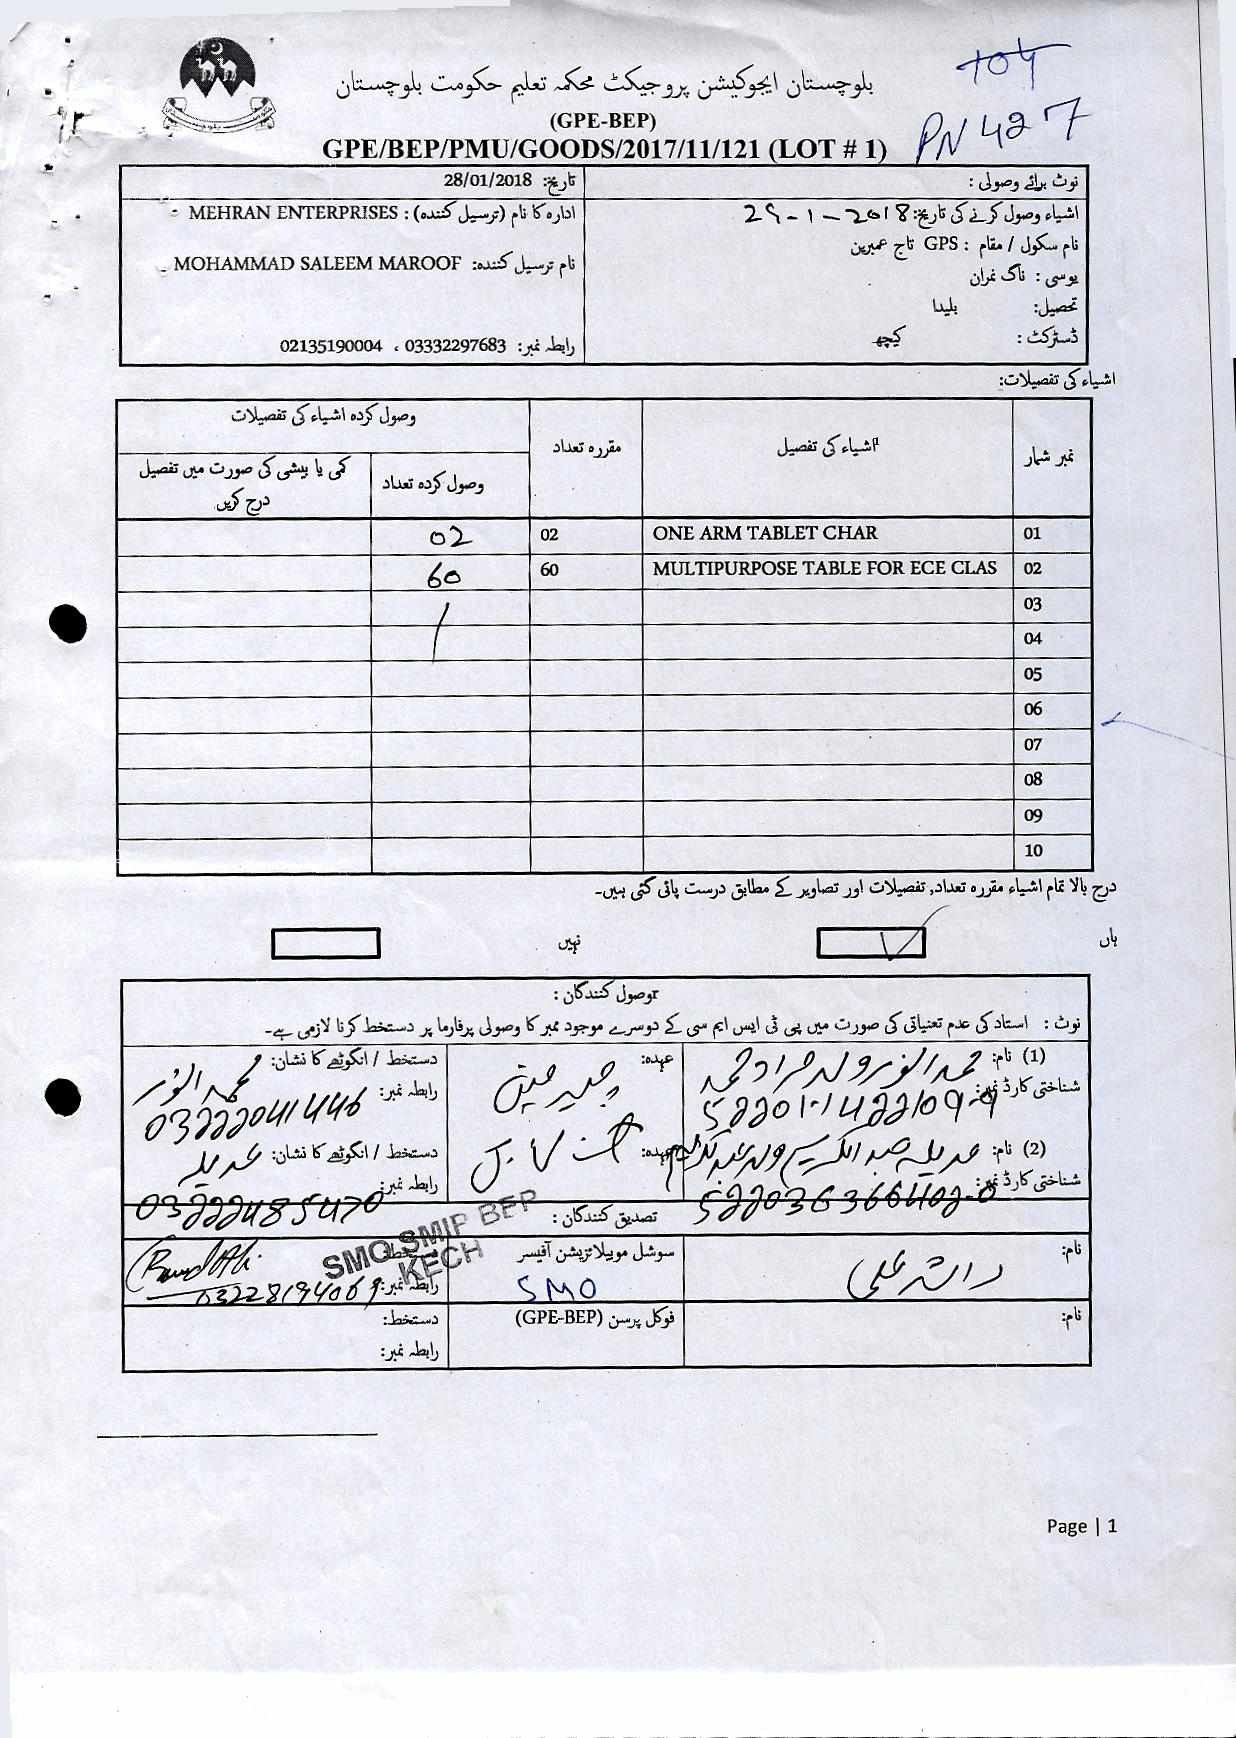 104
PN 427
بلوچستان ایجوکیشن پروجیکٹ محکمہ تعلیم حکومت بلوچستان
(GPE-BEP)
GPE/BEP/PMU/GOODS/2017/11/121 (LOT # 1)
نوٹ برائے وصولی :
تاریخ: 28/01/2018
اشیاء وصول کرنے کی تاریخ: 29-1-2018
ادارہ کا نام (ترسیل کنندہ) : MEHRAN ENTERPRISES -
نام سکول / مقام : GPS تاج عمبرین
نام ترسیل کنندہ: MOHAMMAD SALEEM MAROOF -
یوسی : ناگ نمران
تحصیل: بلیدا
ڈسٹرکٹ : کیچ
رابطہ نمبر: 03332297683 ، 02135190004
اشیاء کی تفصیلات:
نمبر شمار
اشیاء کی تفصیل
مقررہ تعداد
وصول کردہ اشیاء کی تفصیلات
وصول کردہ تعداد
کمی یا بیشی کی صورت میں تفصیل درج کریں
01 ONE ARM TABLET CHAR 02 02
02 MULTIPURPOSE TABLE FOR ECE CLAS 60 60
03
04
05
06
07
08
09
10
درج بالا تمام اشیاء مقررہ تعداد, تفصیلات اور تصاویر کے مطابق درست پائی گئی ہیں۔
ہاں
نہیں
وصول کنندگان :
نوٹ : استاد کی عدم تعنیاتی کی صورت میں پی ٹی ایس ایم سی کے دوسرے موجود ممبر کا وصولی پرفارما پر دستخط کرنا لازمی ہے۔
(1) نام: محمد انور ولد مراد محمد
عہدہ: چیرمین
دستخط / انگوٹھے کا نشان: محمد انور
شناختی کارڈ نمبر:
رابطہ نمبر: 03222041446
(2) نام: عدیلہ عبدالکریم
عہدہ:
دستخط / انگوٹھے کا نشان: عدیلہ
شناختی کارڈ نمبر: 522036366402-0
رابطہ نمبر: 03222485470
تصدیق کنندگان :
SMO SMIP BEP
KECH
نام:
سوشل موبیلائزیشن آفیسر
SMO
دستخط:
رابطہ نمبر: 03228194069
نام:
فوکل پرسن (GPE-BEP)
دستخط:
رابطہ نمبر:
Page | 1